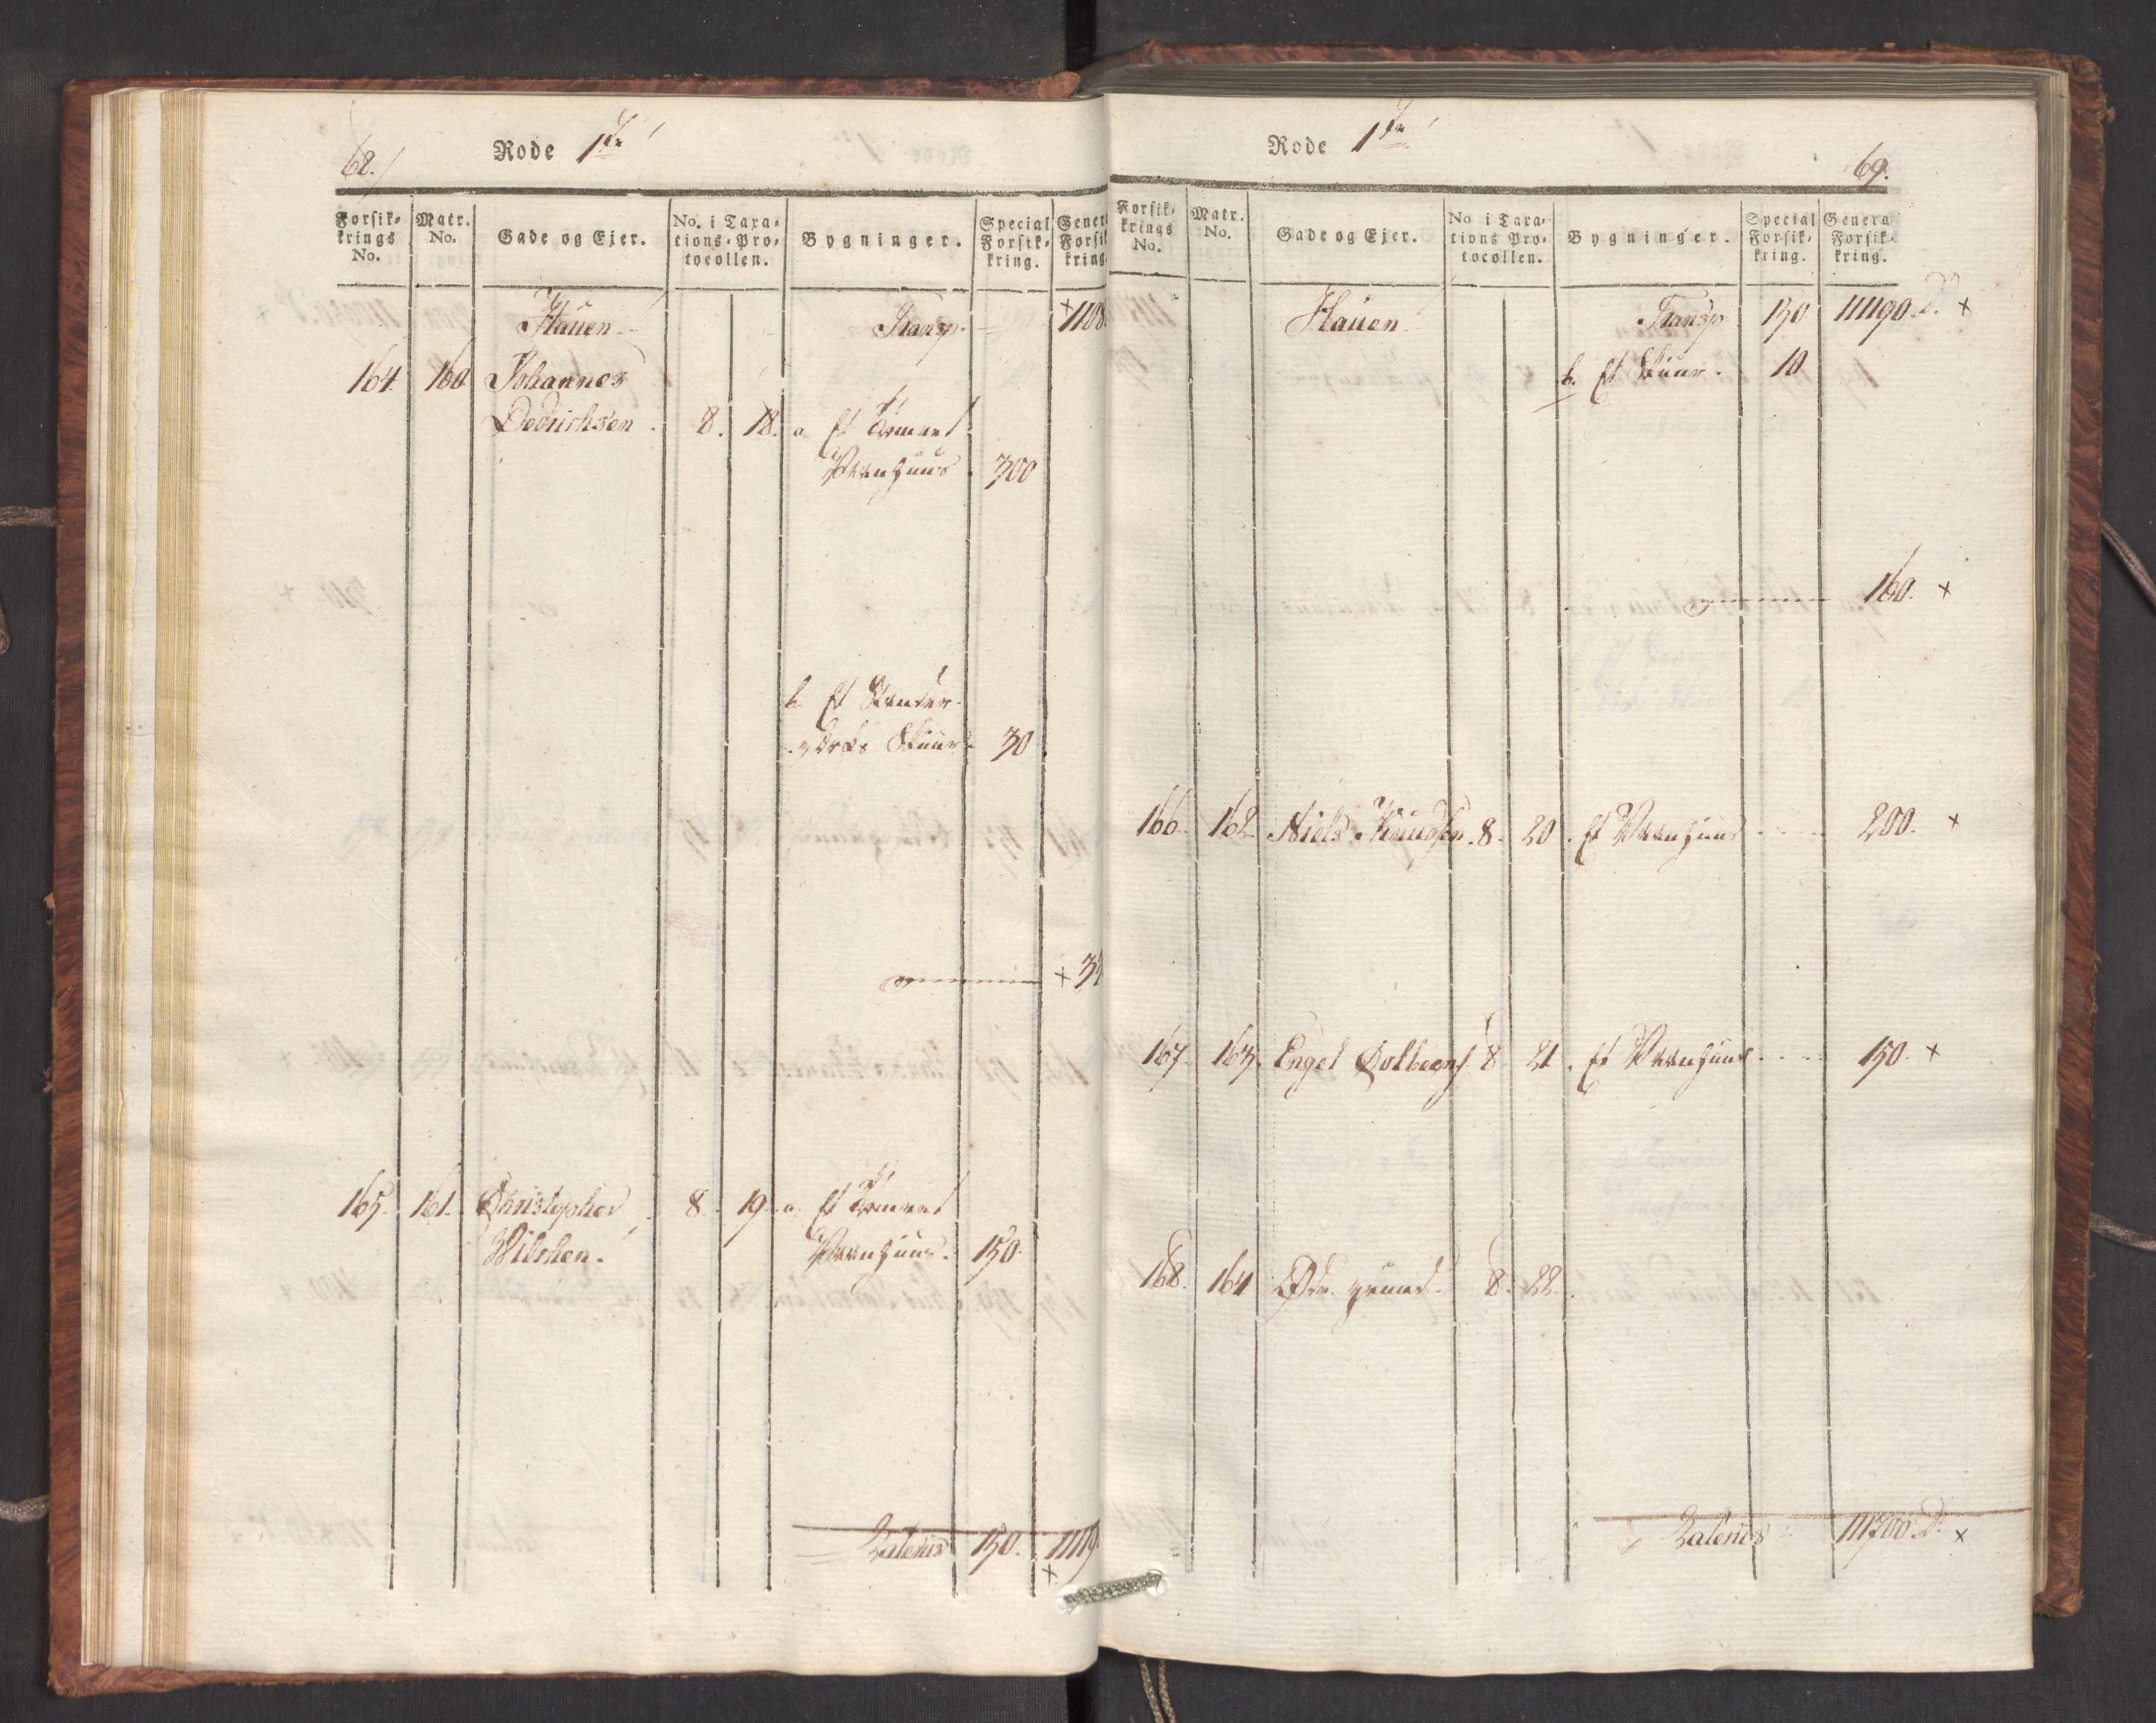 68.
Rode 1te
Forsik-
krings
No.
Matr.
No.
Gade og Ejer.
No. i Taxa-
tions-Pro-
tocollen.
Bygninger.
Special
Forsik-
kring.
Gener
Forsik
kring
Hauen Transp. 1108
164. 160 Johannes
Dedrichsen 8. 18. a Et Tömret
Vaanhuus 300
b. Et Stander-
værks Skuur 30
165. 161. Christopher 8. 19. a Et Tömret
Vaanhuus. 150.
Lateris 150. 1119
69.
Rode 1te
Forsik-
krings
No.
Matr.
No.
Gade og Ejer.
No i Taxa-
tions Pro-
tocollen.
Bygninger.
Special
Forsik-
kring.
Genera
Forsik-
kring.
Hauen Transp. 150 11190 D. x
b. Et Skuur. 10
160. x
166. 162. Niels Knudsen 8. 20. Et Vaanhuus 200. x
167. 163. Engel 8. 21. Et Vaanhuus 150. x
168. 164 Øde grund. 8. 22.
Lateris 11700 D. x